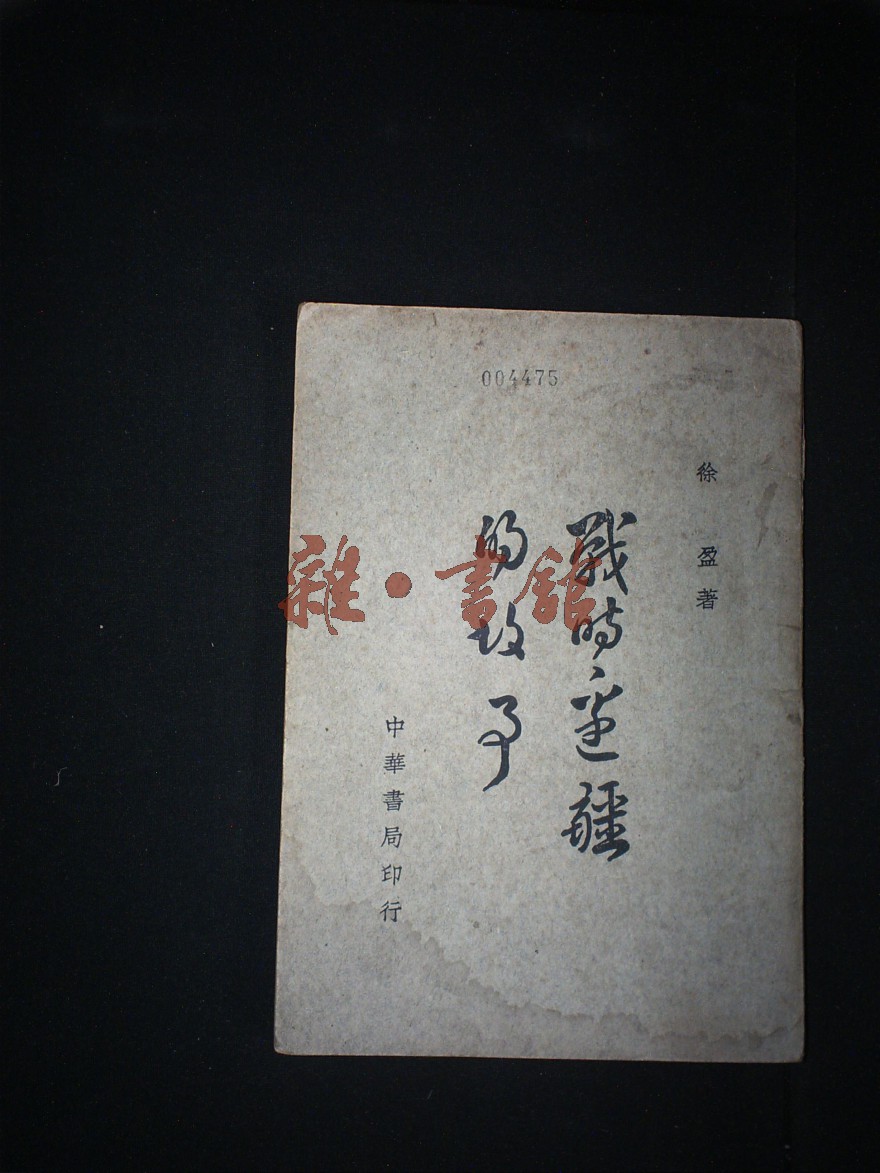 004475
徐盈著
戰時邊疆
的故事
中華書局印行
雜·書館